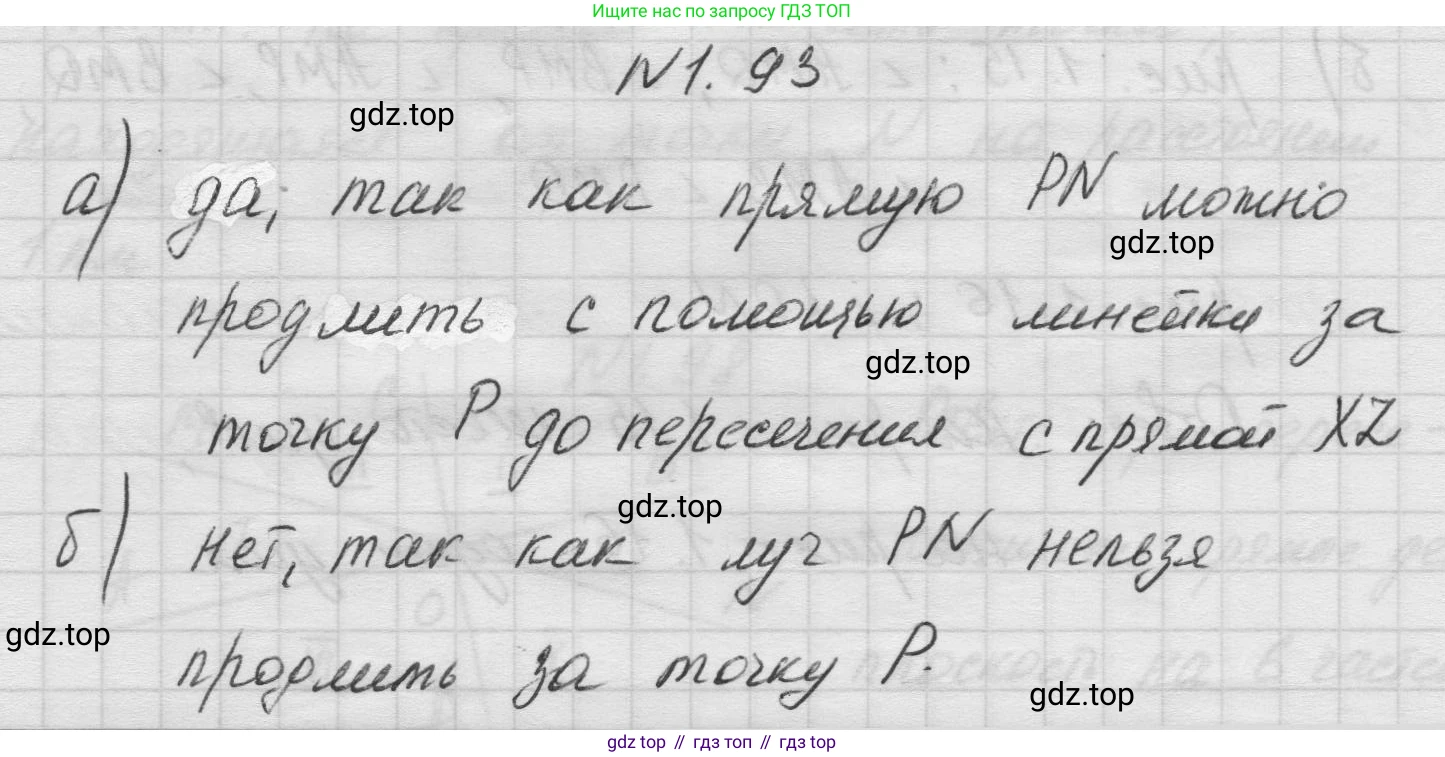 Ищите нас по запросу ГДЗ ТОП
N1.93
gdz.top
а) да, так как прямую PN можно
gdz.top
продлить с помощью линейки за
gdz.top
точку P до пересечения с прямой XZ
gdz.top
б) нет, так как луч PN нельзя
gdz.top
продлить за точку P.
gdz.top
gdz top // гдз топ // гдз top